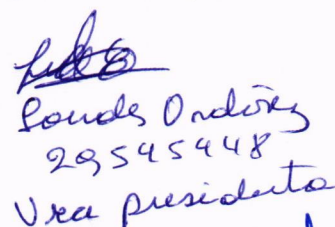 Lourdes Ordoñez
29545448
Vice presidenta